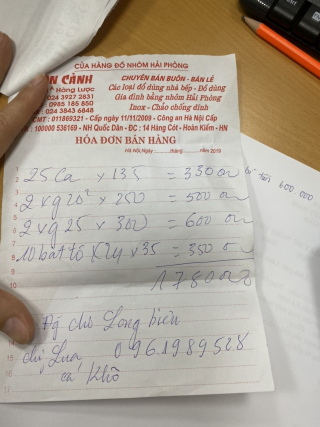 CỬA HÀNG ĐỒ NHÔM HẢI PHÒNG
CẢNH
CHUYÊN BÁN BUÔN - BÁN LẺ
Hàng Lược
Các loại đồ dùng nhà bếp - Đồ dùng
024 3927 2831
Gia đình bằng nhôm Hải Phòng
0985 185 850
Inox - Chảo chống dính
024 3843 6848
CMT : 011869321 - Cấp ngày 11/11/2009 - Công an Hà Nội Cấp
: 100000 536169 - NH Quốc Dân - ĐC : 14 Hàng Cót - Hoàn Kiếm - HN
HÓA ĐƠN BÁN HÀNG
Hà Nội, Ngày tháng năm 2019
25 Ca x 135 = 330
600 000
2 vg 20 x 250 = 500
2 vg 25 x 300 = 600
10 bát tô x 35 = 350
1780
Đ/c chợ Long biên
chị Lua 0961989528
cá khô